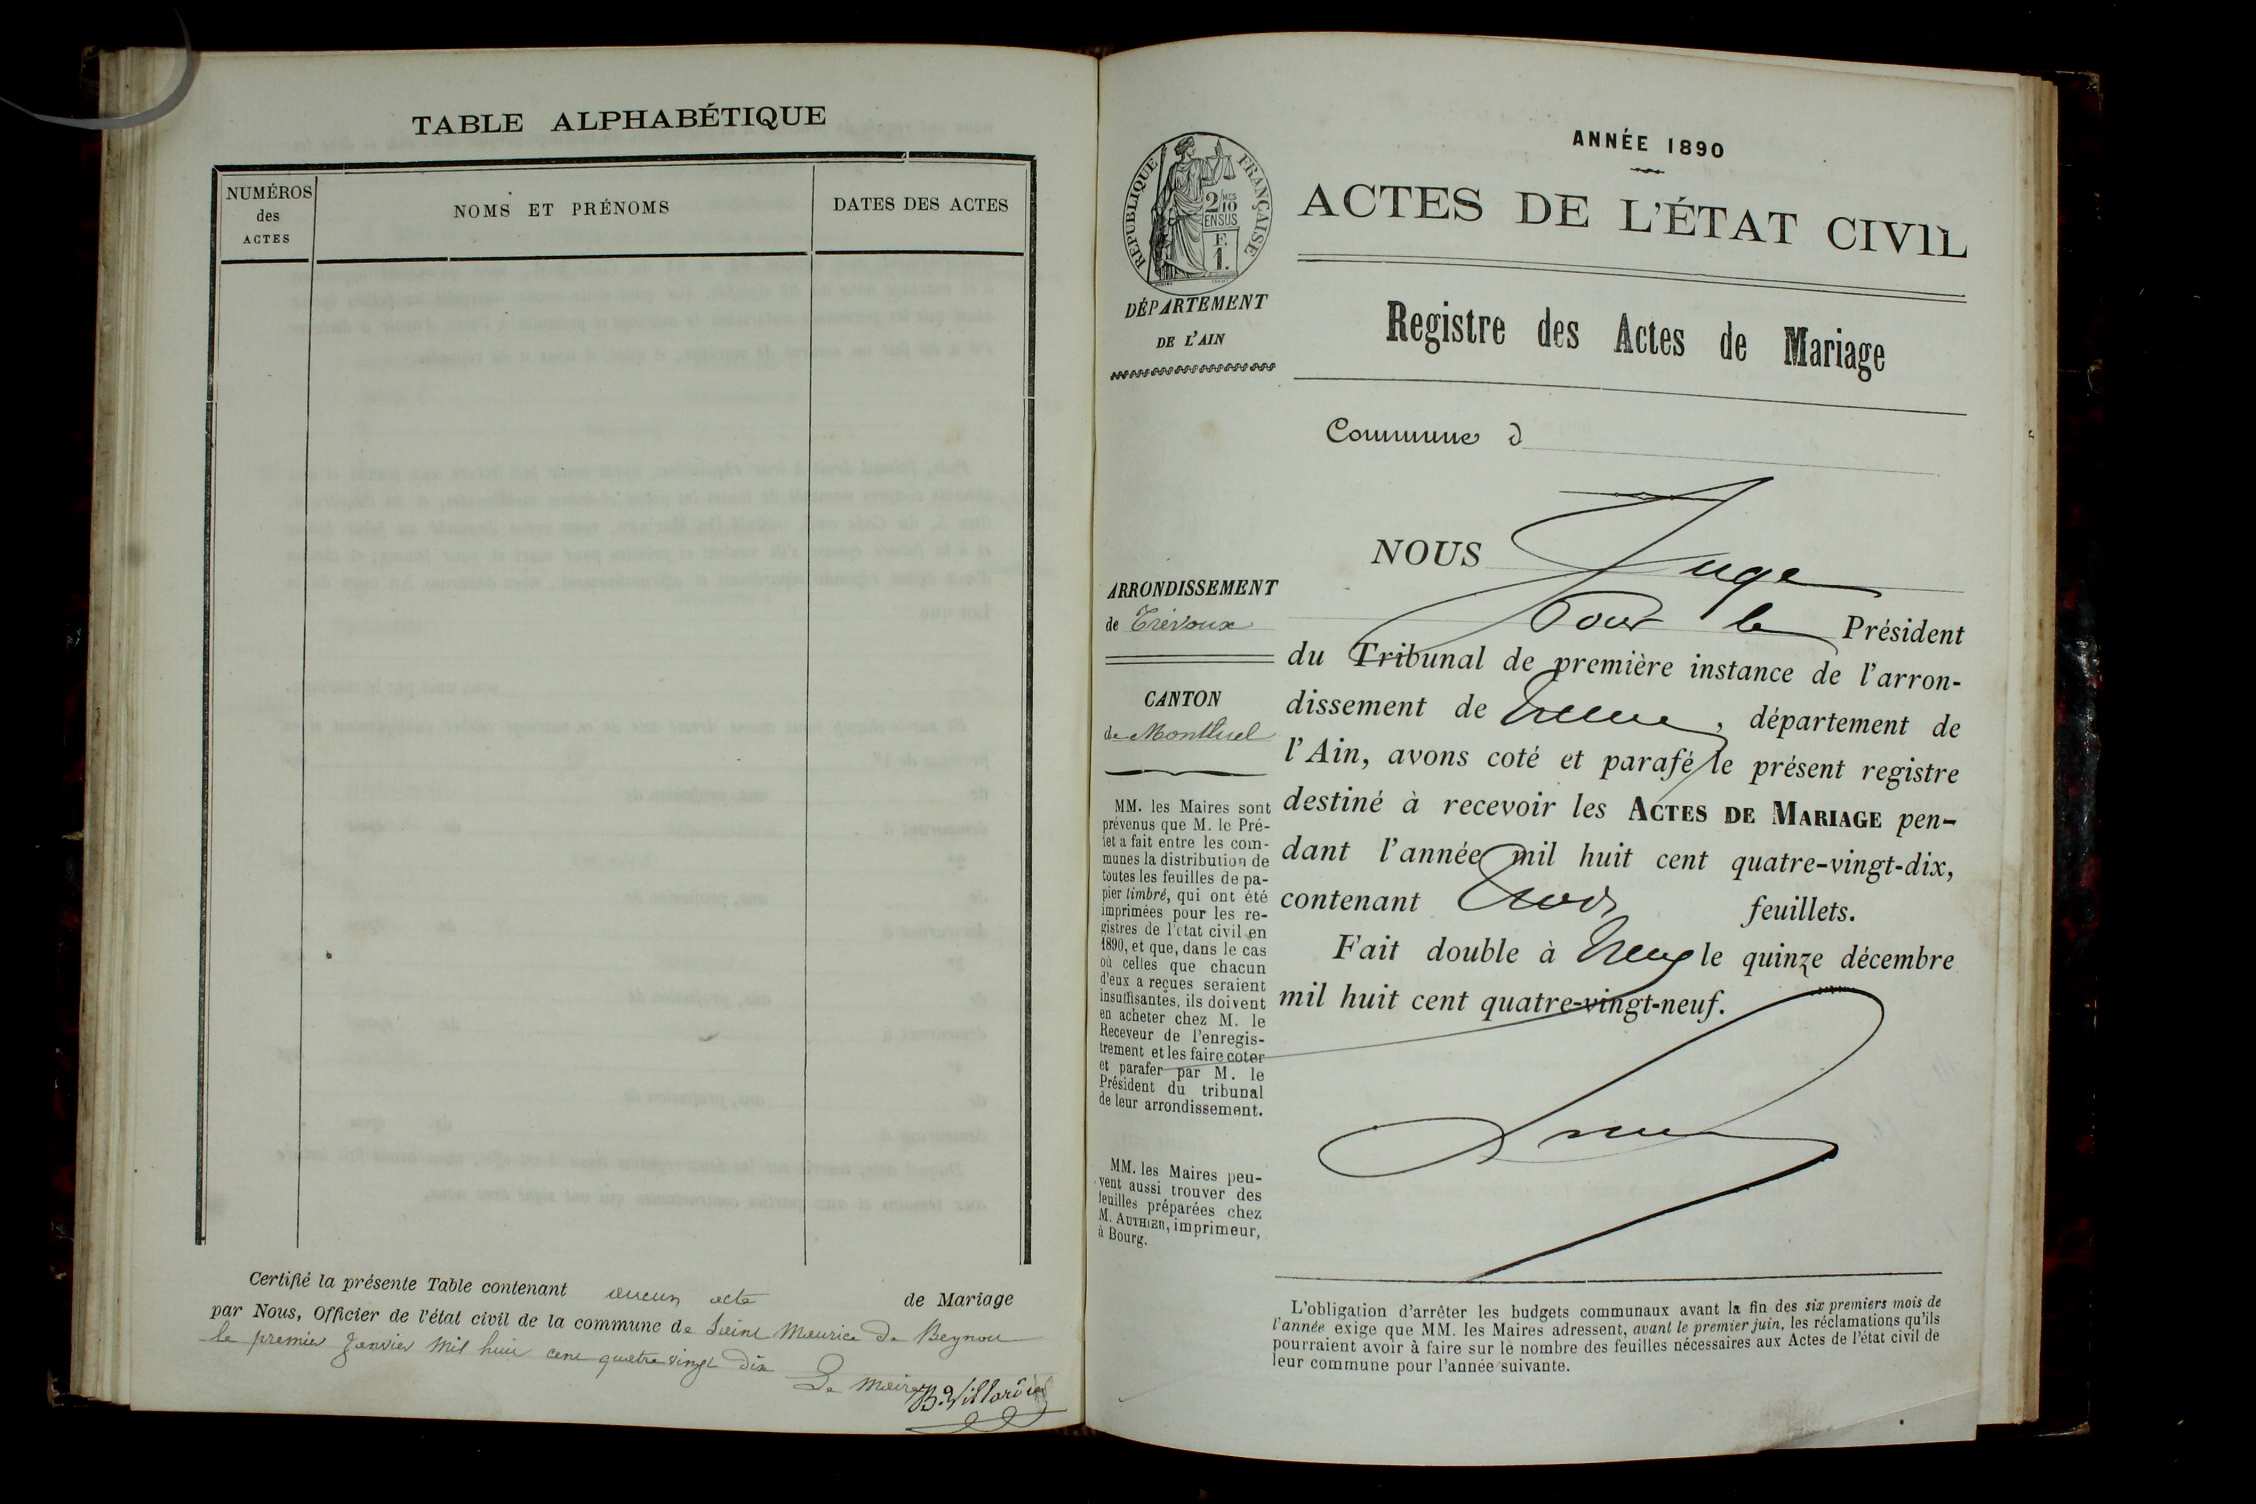 TABLE ALPHABÉTIQUE
NUMÉROS
des
ACTES
NOMS ET PRÉNOMS
DATES DES ACTES
Certifié la présente Table contenant aucun acte de Mariage
par Nous, Officier de l'état civil de la commune de Saint Maurice de Beynost
le premier Janvier mil huit cent quatre vingt dix
Le maire
B. Villard
ANNÉE 1890
ACTES DE L'ÉTAT CIVIL
RÉPUBLIQUE FRANÇAISE
2/10 MES
EN SUS
F.
1.
DÉPARTEMENT
DE L'AIN
Registre des Actes de Mariage
Commune d
ARRONDISSEMENT
de Trévoux
CANTON
de Montluel
MM. les Maires sont
prévenus que M. le Pré-
fet a fait entre les com-
munes la distribution de
toutes les feuilles de pa-
pier timbré, qui ont été
imprimées pour les re-
gistres de l'état civil en
1890, et que, dans le cas
où celles que chacun
d'eux a reçues seraient
insuffisantes, ils doivent
en acheter chez M. le
Receveur de l'enregis-
trement et les faire coter
et parafer par M. le
Président du tribunal
de leur arrondissement.
MM. les Maires peu-
vent aussi trouver des
feuilles préparées chez
M. AUTHIER, imprimeur,
à Bourg.
NOUS Juge
Pour le Président
du Tribunal de première instance de l'arron-
dissement de Trévoux, département de
l'Ain, avons coté et parafé le présent registre
destiné à recevoir les ACTES DE MARIAGE pen-
dant l'année mil huit cent quatre-vingt-dix,
contenant trois feuillets.
Fait double à Trévoux le quinze décembre
mil huit cent quatre-vingt-neuf.
L'obligation d'arrêter les budgets communaux avant la fin des six premiers mois de
l'année exige que MM. les Maires adressent, avant le premier juin, les réclamations qu'ils
pourraient avoir à faire sur le nombre des feuilles nécessaires aux Actes de l'état civil de
leur commune pour l'année suivante.